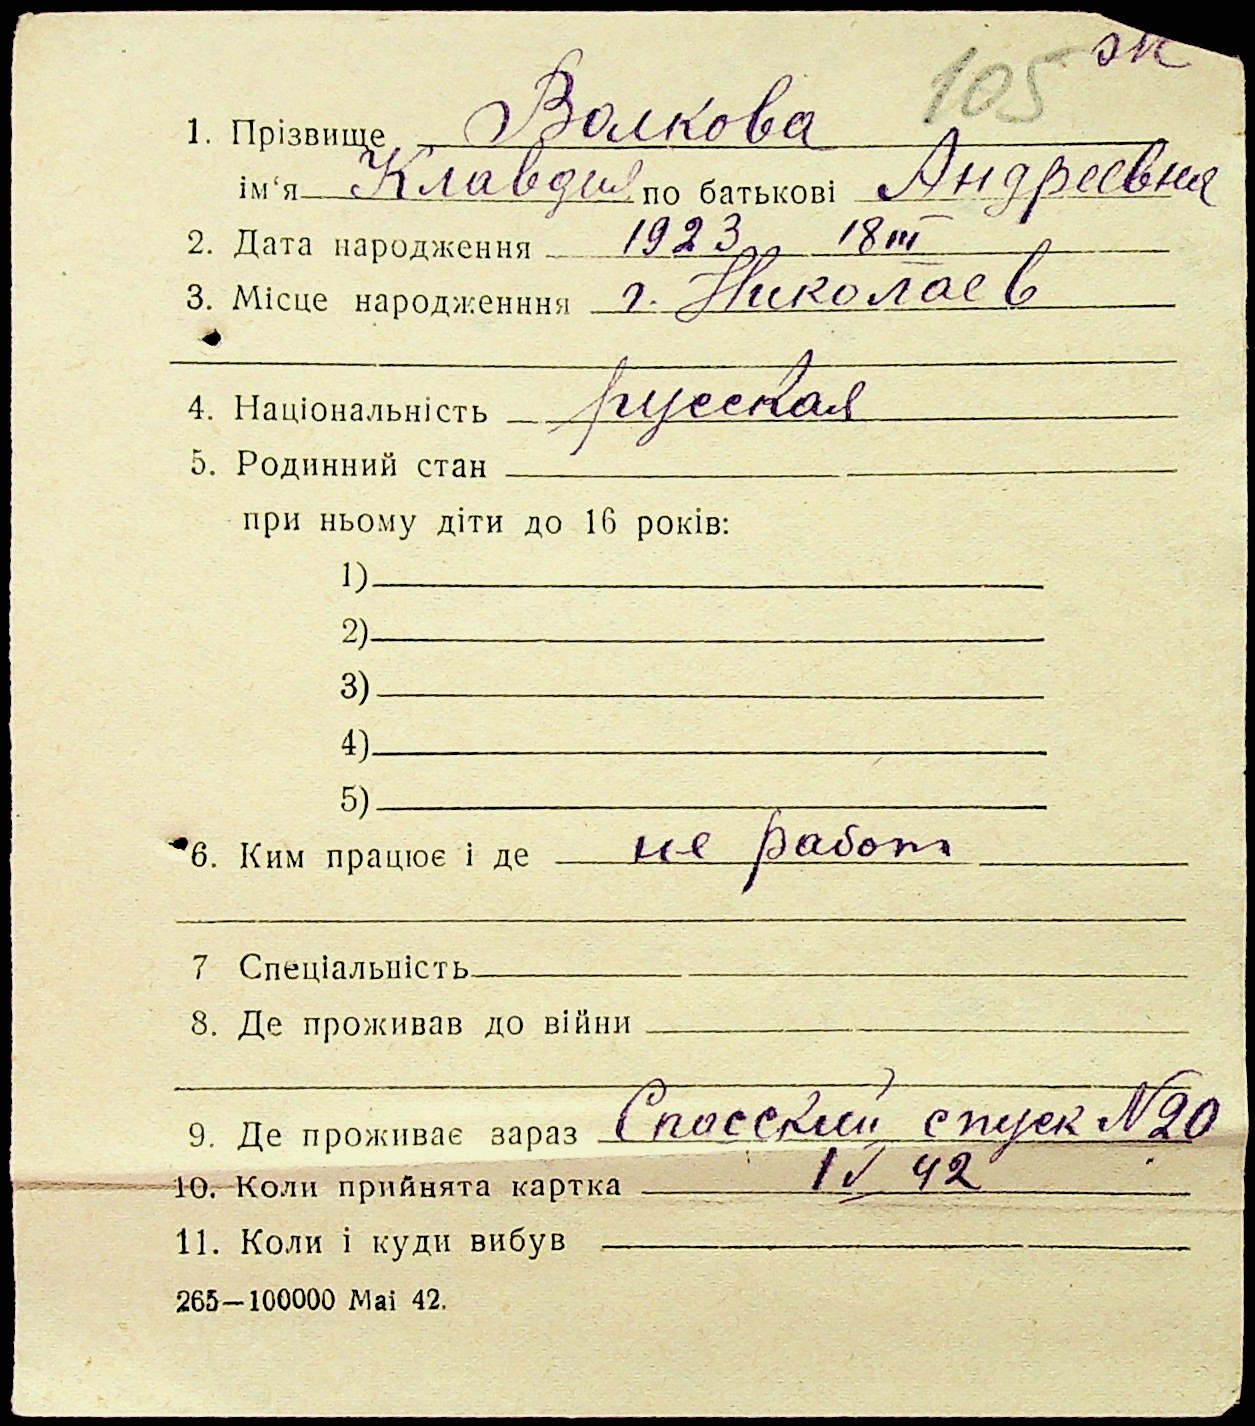 105 эк
1. Прізвище Волкова
ім'я Клавдия по батькові Андреевна
2. Дата народження 1923 18 III
3. Місце народженння г. Николаев
4. Національність русская
5. Родинний стан
при ньому діти до 16 років:
1)
2)
3)
4)
5)
6. Ким працює і де не работ
7 Спеціальність
8. Де проживав до війни
9. Де проживає зараз Спасский спуск №20
10. Коли прийнята картка 1 V 42
11. Коли і куди вибув
265—100000 Маі 42.